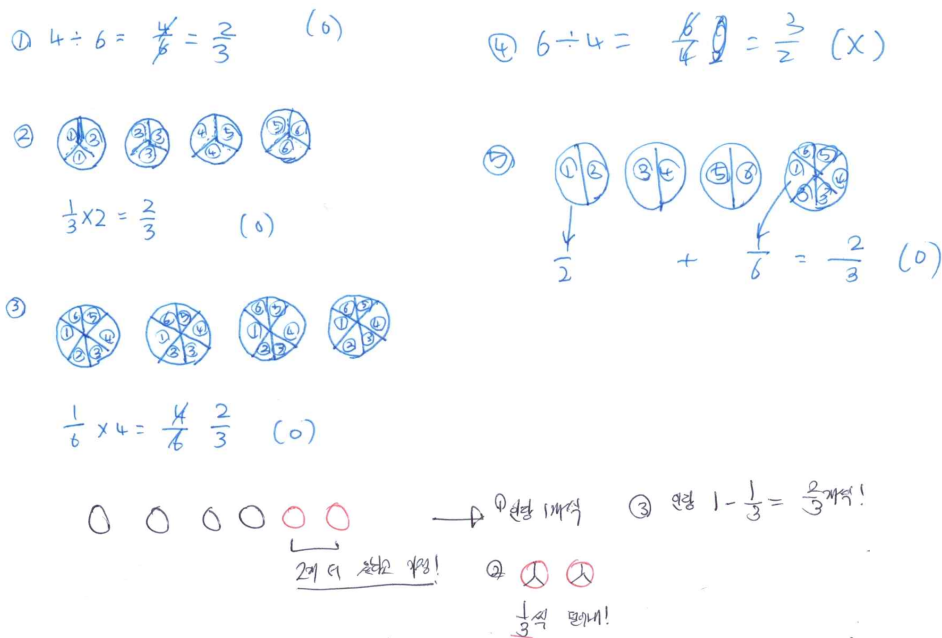 ① 4÷6 = 4/6 = 2/3 (O)
② ① ② ① ② ③ ③ ④ ⑤ ④ ⑤ ⑥ ⑥
1/3×2 = 2/3 (O)
③ ⑥ ⑤ ① ④ ② ③ ⑥ ⑤ ① ④ ② ③ ⑥ ⑤ ① ④ ② ③ ⑥ ⑤ ① ④ ② ③
1/6 × 4 = 4/6 2/3 (O)
④ 6÷4 = 6/4 = 3/2 (X)
⑤ ① ② ③ ④ ⑤ ⑥ ⑥ ⑤ ① ④ ② ③
1/2 + 1/6 = 2/3 (O)
2개 더 있다고 가정!
① 인당 1개씩
② 1/3씩 덜어내!
③ 인당 1 - 1/3 = 2/3개씩!